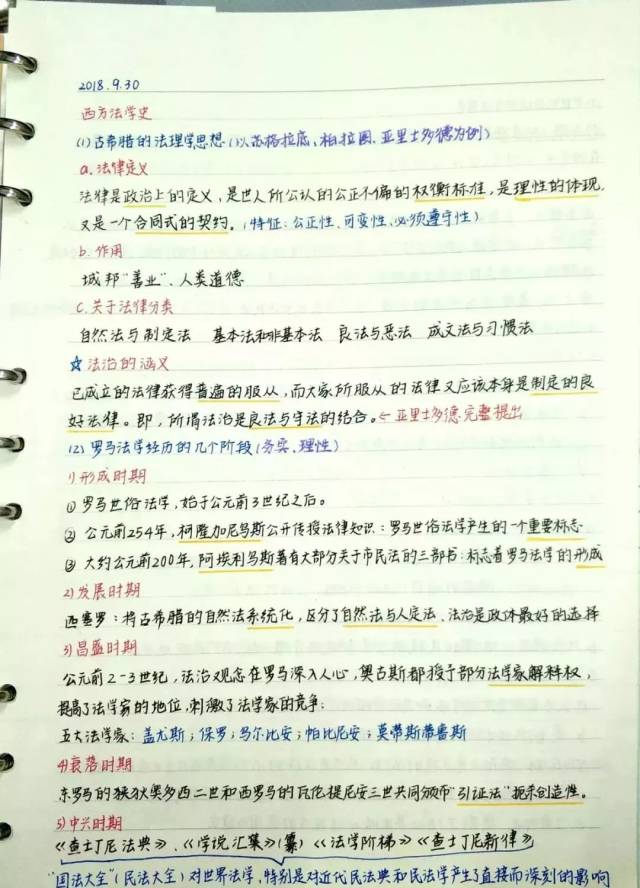 2018.9.30
西方法学史
(1)古希腊的法理学思想(以苏格拉底、柏拉图、亚里士多德为例)
a.法律定义
法律是政治上的定义，是世人所公认的公正不偏的权衡标准，是理性的体现，
又是一个合同式的契约。(特征：公正性、可变性、必须遵守性)
b.作用
城邦"善业"、人类道德
C.关于法律分类
自然法与制定法 基本法和非基本法 良法与恶法 成文法与习惯法
☆法治的涵义
已成立的法律获得普遍的服从，而大家所服从的法律又应该本身是制定的良
好法律。即，所谓法治是良法与守法的结合。←亚里士多德完整提出
(2)罗马法学经历的几个阶段(务实、理性)
1)形成时期
①罗马世俗法学，始于公元前3世纪之后。
②公元前254年，柯隆加尼乌斯公开传授法律知识：罗马世俗法学产生的一个重要标志
③大约公元前200年，阿埃利乌斯著有大部分关于市民法的三部书：标志着罗马法学的形成
2)发展时期
西塞罗：将古希腊的自然法系统化，区分了自然法与人定法、法治是政体最好的选择
3)昌盛时期
公元前2-3世纪，法治观念在罗马深入人心，奥古斯都授予部分法学家解释权，
提高了法学家的地位，刺激了法学家的竞争：
五大法学家：盖尤斯；保罗；乌尔比安；帕比尼安；莫蒂斯蒂鲁斯
4)衰落时期
东罗马的狄奥多西二世和西罗马的瓦伦提尼安三世共同颁布"引证法"扼杀创造性。
5)中兴时期
《查士丁尼法典》、《学说汇集》(纂)《法学阶梯》《查士丁尼新律》
"国法大全"(民法大全)对世界法学，特别是对近代民法典和民法学产生了直接而深刻的影响